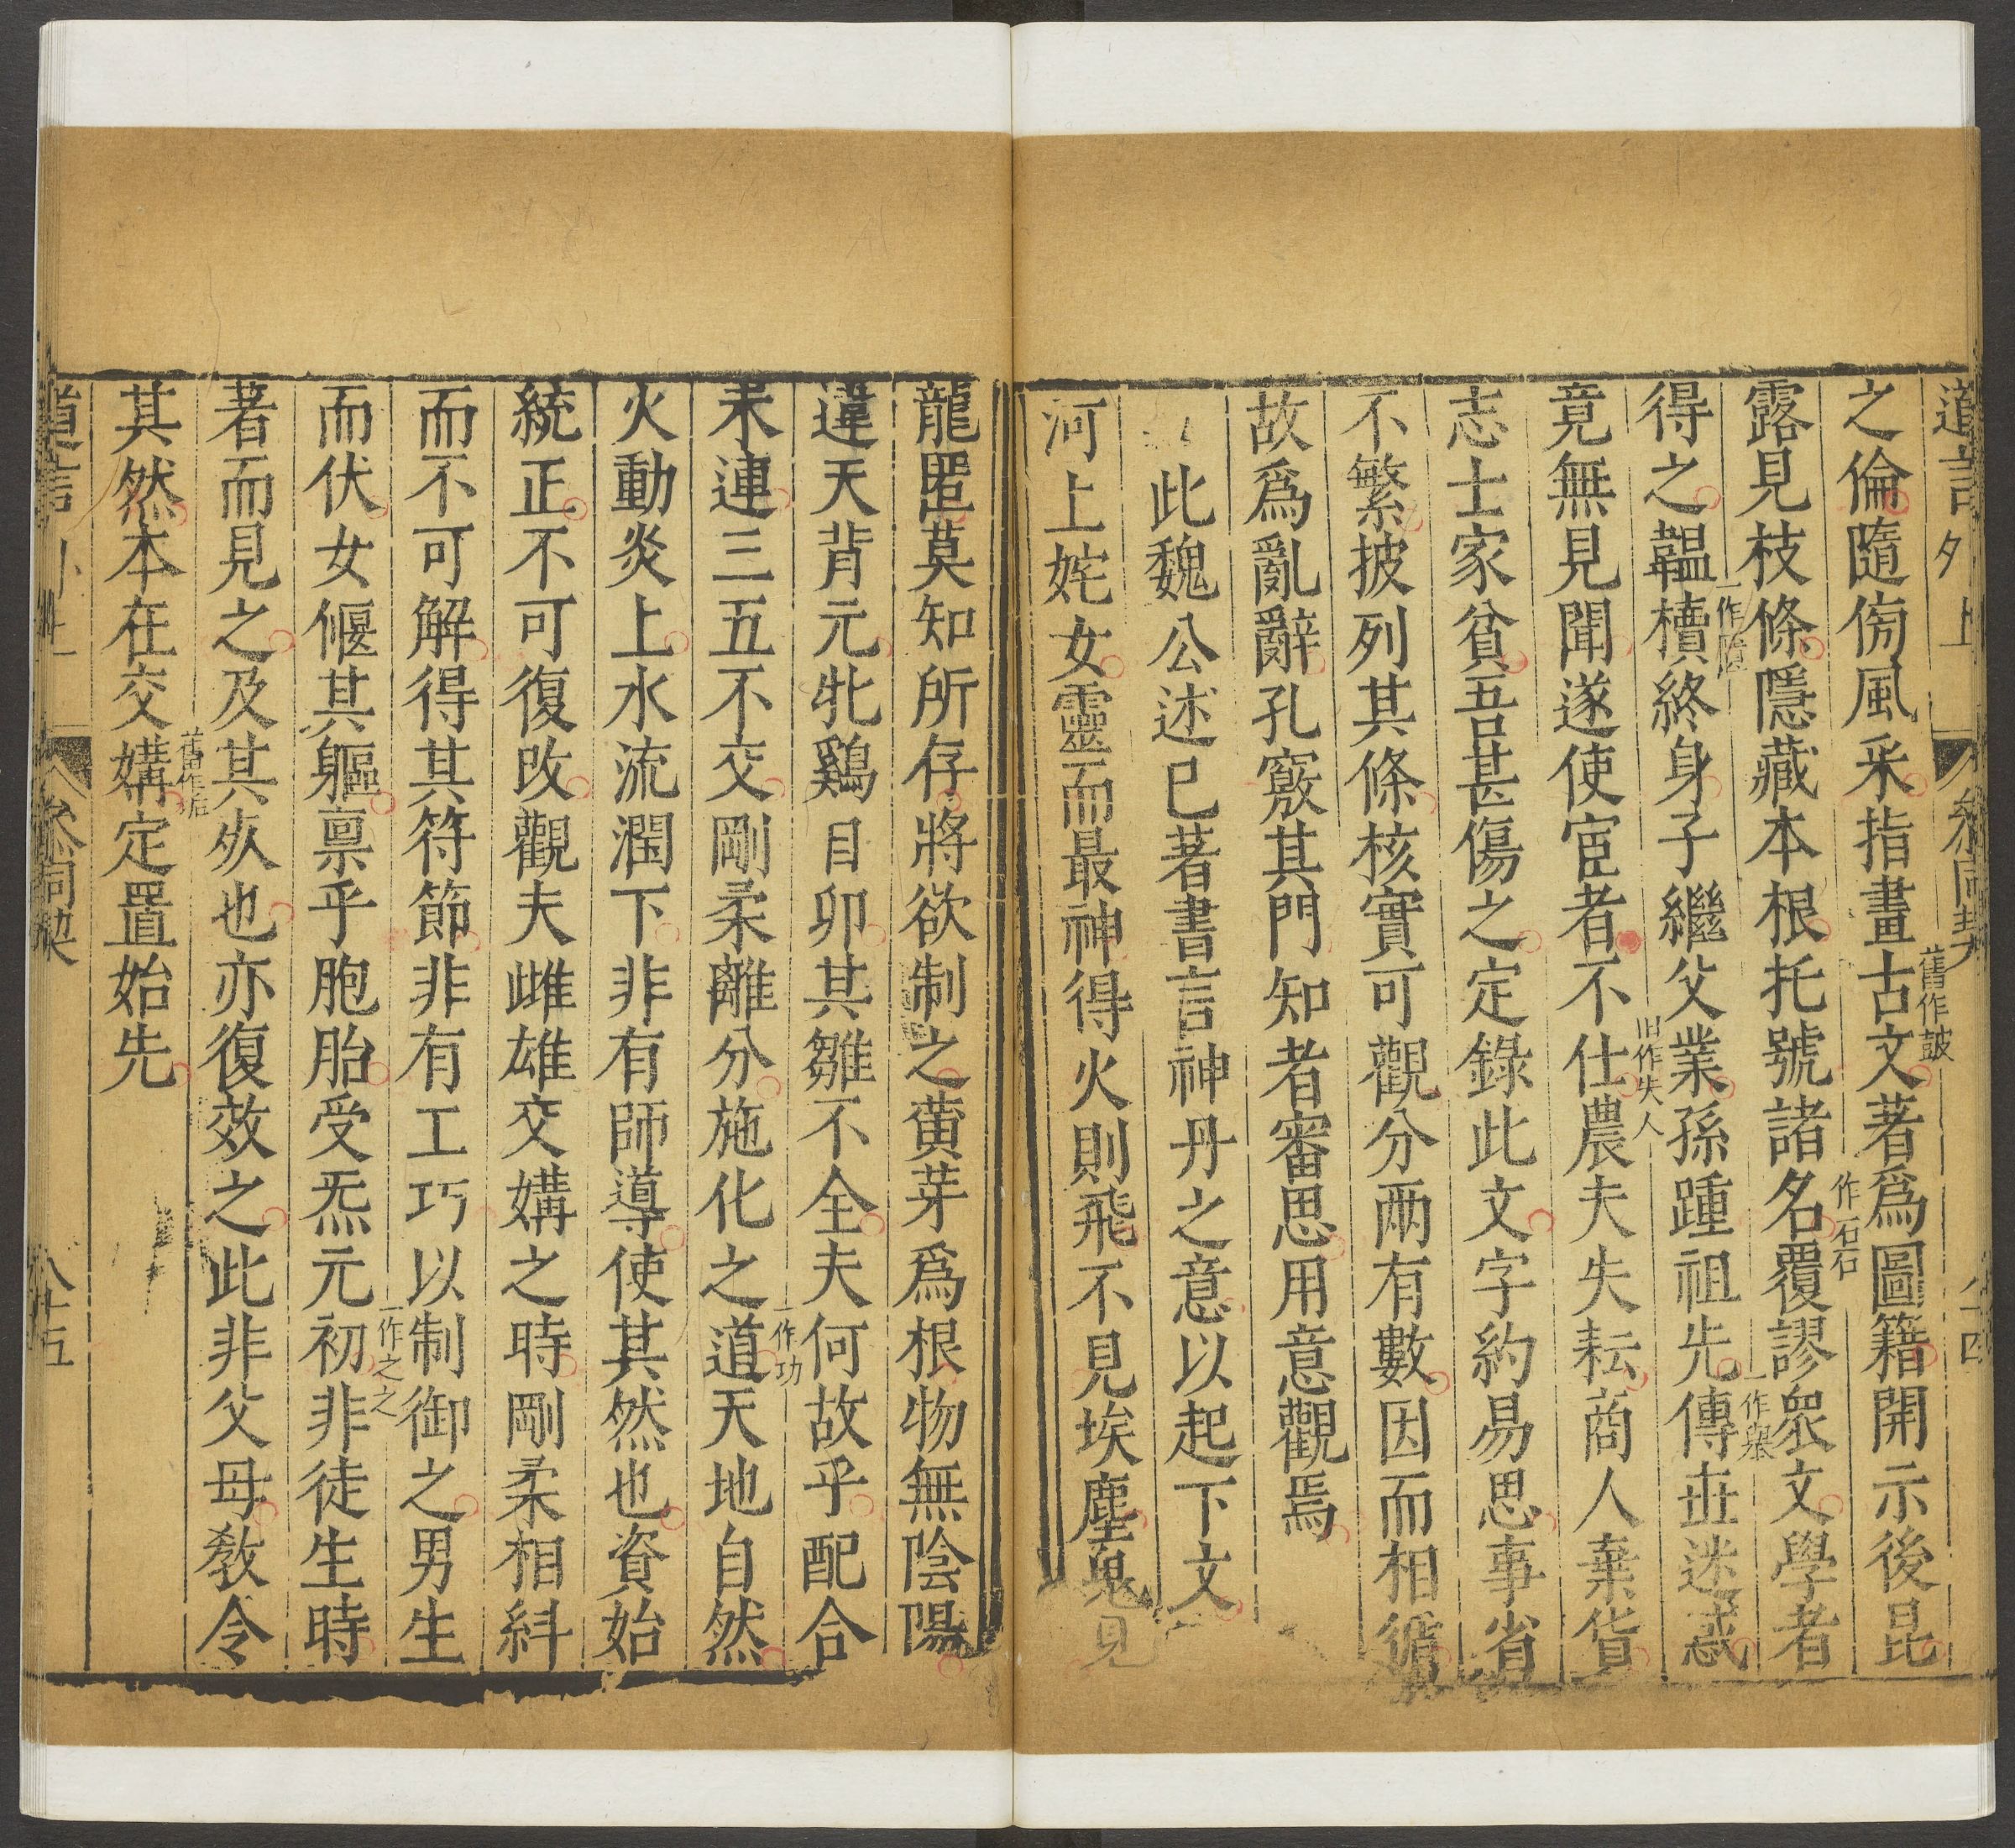 道言外 上 參同契 八十四
之倫隨傍風采指畫古文著爲圖籍開示後昆
舊作皷
露見枝條隱藏本根托號諸名覆謬衆文學者
作石石
得之韞櫝終身子繼父業孫踵祖先傳丗迷惑
一作隨
一作舉
竟無見聞遂使宦者不仕農夫失耘商人棄貨
旧作失人
志士家貧吾甚傷之定錄此文字約易思事省
不繁披列其條核實可觀分兩有數因而相循
故爲亂辭孔竅其門知者審思用意觀焉
此魏公述已著書言神丹之意以起下文
河上姹女靈而最神得火則飛不見埃塵鬼見
龍匿莫知所存將欲制之黄芽爲根物無陰陽
違天背元牝鷄自卵其雛不全夫何故乎配合
未連三五不交剛柔離分施化之道天地自然
一作功
火動炎上水流潤下非有師導使其然也資始
統正不可復改觀夫雌雄交媾之時剛柔相糾
而不可解得其符節非有工巧以制御之男生
而伏女偃其軀禀乎胞胎受炁元初非徒生時
一作之之
著而見之及其死也亦復效之此非父母教令
其然本在交媾定置始先
舊作后
道言 外上 參同契 八十五